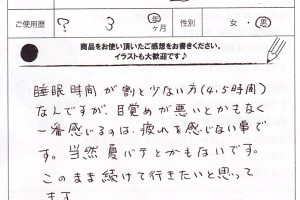 ご使用歴 ? 3 年 ヶ月 性別 女・男
商品をお使い頂いたご感想をお書きください。
イラストも大歓迎です♪
睡眠時間が割と少ない方(4.5時間)
なんですが、目覚めが悪いとかもなく
一番感じるのは、疲れを感じない事で
す。当然夏バテとかもないです。
このまま続けて行きたいと思って
ます